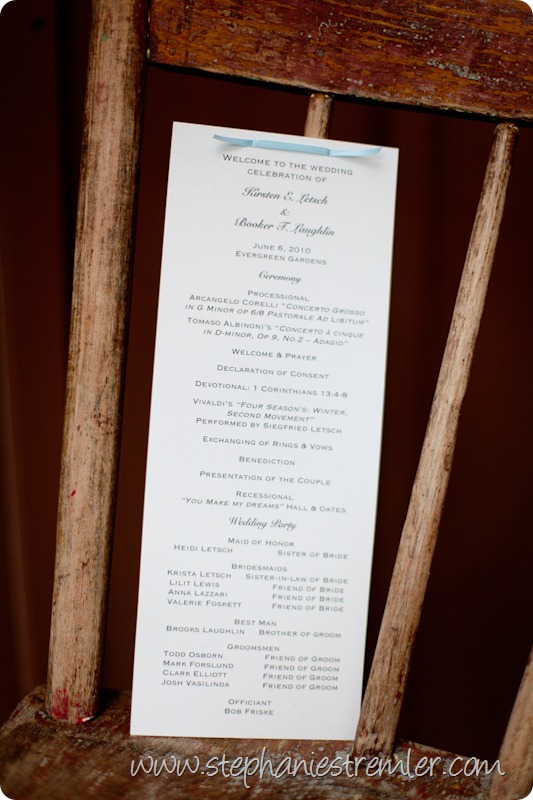 Welcome to the wedding
celebration of
Kirsten E. Letsch
&
Booker T. Laughlin
June 6, 2010
Evergreen Gardens
Ceremony
Processional
Arcangelo Corelli "Concerto Grosso
in G Minor op 6/8 Pastorale Ad Libitum"
Tomaso Albinoni's "Concerto à cinque
in D-minor, Op 9, No.2 – Adagio"
Welcome & Prayer
Declaration of Consent
Devotional: 1 Corinthians 13:4-8
Vivaldi's "Four Season's: Winter,
Second Movement"
Performed by Siegfried Letsch
Exchanging of Rings & Vows
Benediction
Presentation of the Couple
Recessional
"You Make my dreams" Hall & Oates
Wedding Party
Maid of Honor
Heidi Letsch Sister of Bride
Bridesmaids
Krista Letsch Sister-in-law of Bride
Lilit Lewis Friend of Bride
Anna Lazzari Friend of Bride
Valerie Foskett Friend of Bride
Best Man
Brooks Laughlin Brother of groom
Groomsmen
Todd Osborn Friend of Groom
Mark Forslund Friend of Groom
Clark Elliott Friend of Groom
Josh Vasilinda Friend of Groom
Officiant
Bob Friske
www.stephaniestremler.com